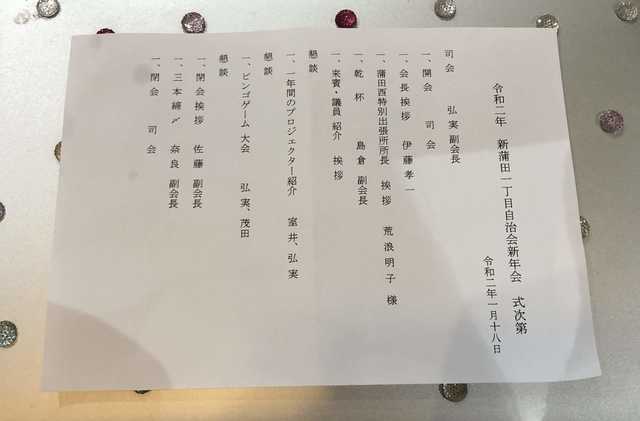 令和二年 新蒲田一丁目自治会新年会 式次第
令和二年一月十八日
司会 弘実副会長
一、開会 司会
一、会長挨拶 伊藤孝一
一、蒲田西特別出張所所長 挨拶 荒浪明子 様
一、乾杯 島倉 副会長
一、来賓・議員 紹介 挨拶
懇談
一、一年間のプロジェクター紹介 室井、弘実
懇談
一、ビンゴゲーム大会 弘実、茂田
懇談
一、閉会挨拶 佐藤 副会長
一、三本締〆 奈良 副会長
一、閉会 司会